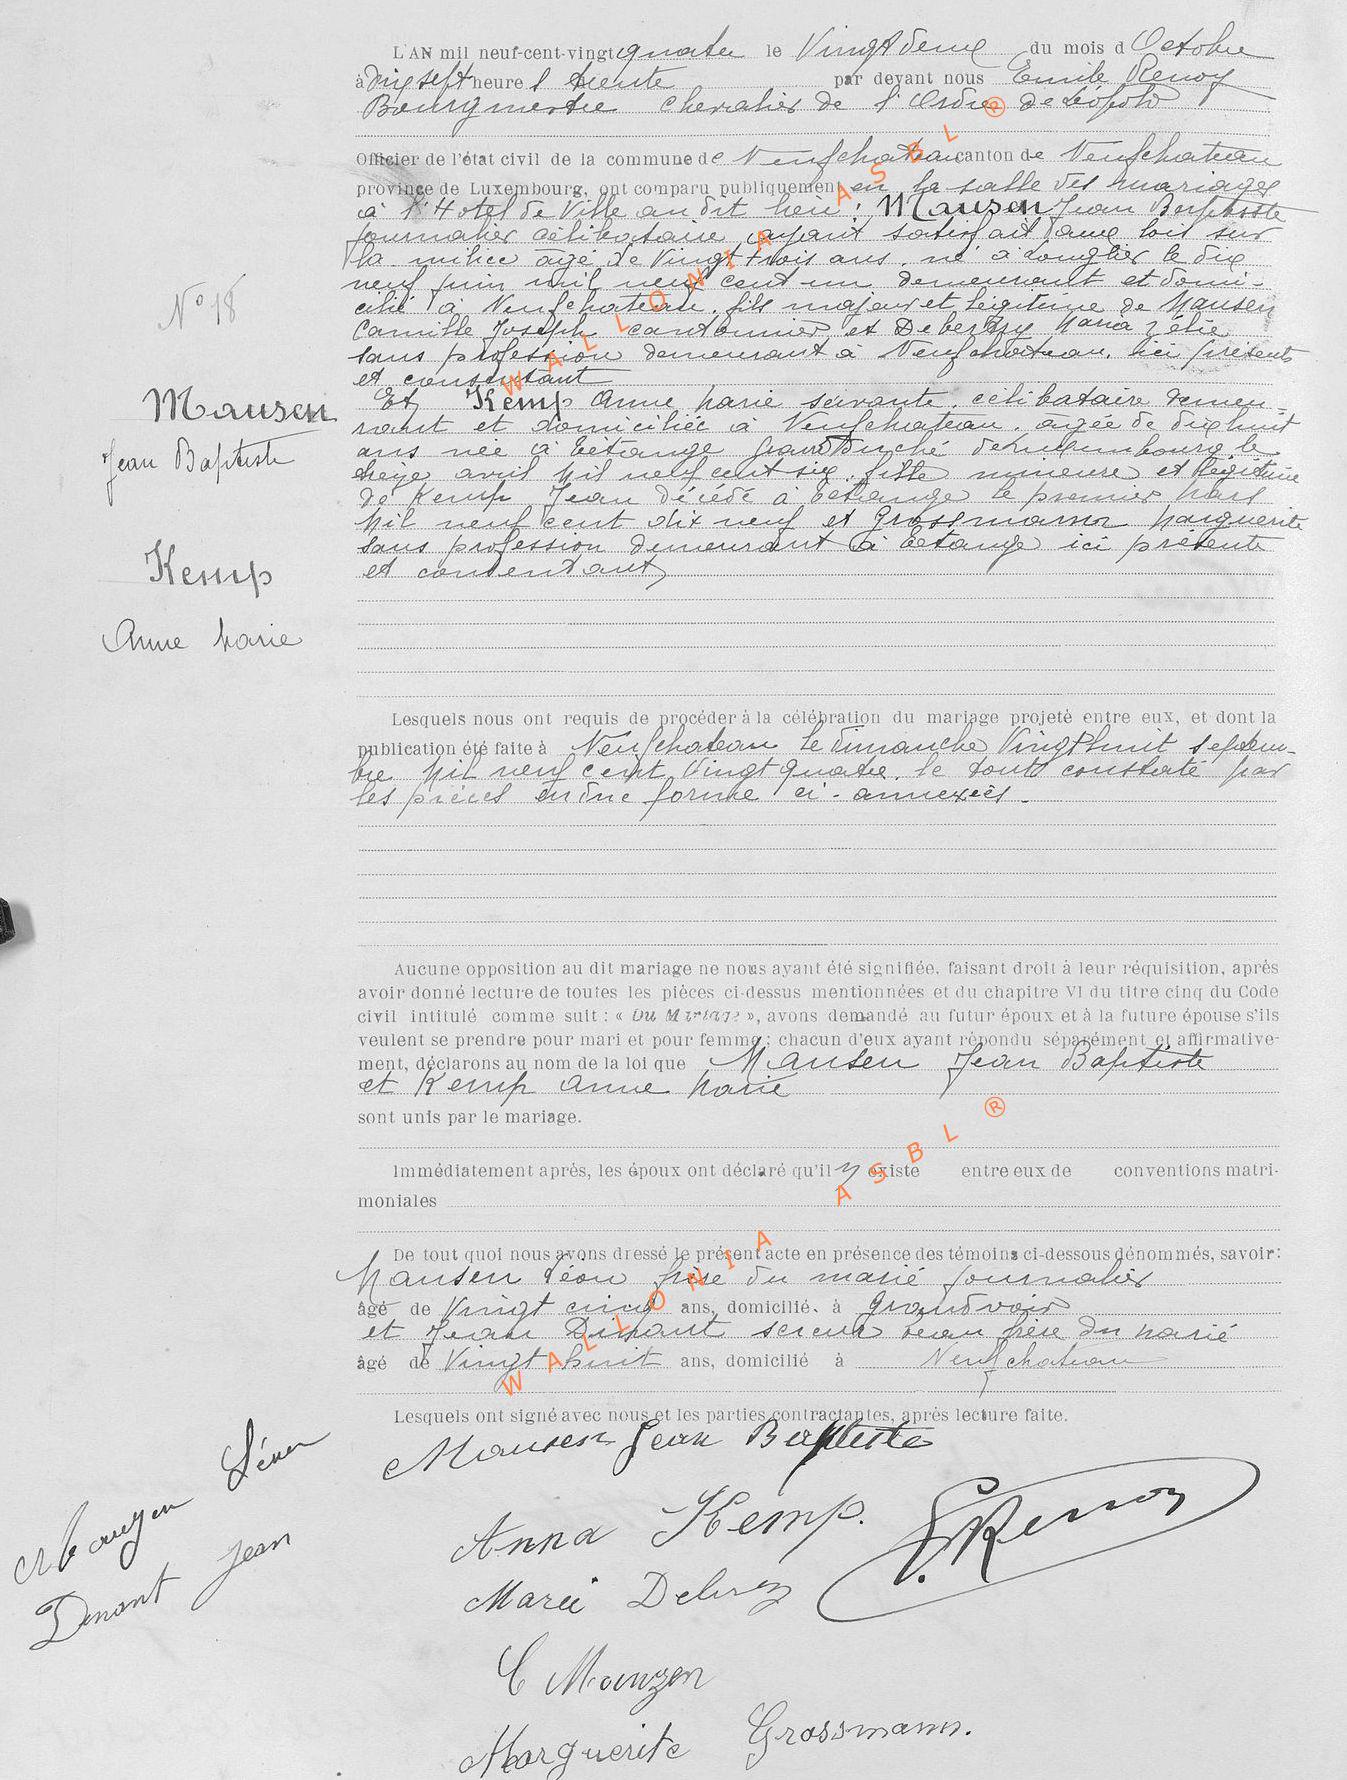 L'AN mil neuf-cent-vingt quatre le Vingt deux du mois d Octobre
à dix sept heure s trente par devant nous Emile Renoy
Bourgmestre chevalier de l'Ordre de Léopold
Officier de l'état civil de la commune de Neufchateau canton de Neufchateau
province de Luxembourg, ont comparu publiquement en la salle des mariages
à l'Hotel de Ville au dit lieu : Mausen Jean Baptiste
journalier célibataire ayant satisfait aux lois sur
la milice âgé de vingt trois ans, né à Longlier le dix
neuf juin mil neuf cent un demeurant et domi-
cilié à Neufchateau, fils majeur et légitime de Mausen
Camille Joseph cantonnier et Maria
sans profession demeurant à Neufchateau, ici présents
et consentant
Et Kemp Anne Marie servante, célibataire demeu-
rant et domiciliée à Neufchateau, âgée de dix huit
ans née à Bétange Grand Duché de Luxembourg le
avril Mil neuf cent six, fille mineure et légitime
de Kemp Jean décédé à Bétange le premier Mars
Mil neuf cent dix neuf et Grossmann Marguerite
sans profession demeurant à Bétange ici présente
et consentant
N° 18
Mausen
Jean Baptiste
Kemp
Anne Marie
Lesquels nous ont requis de procéder à la célébration du mariage projeté entre eux, et dont la
publication été faite à Neufchateau le dimanche Vingt huit septem-
bre Mil neuf cent Vingt quatre, le tout constaté par
les pièces en due forme ci-annexées.
Aucune opposition au dit mariage ne nous ayant été signifiée, faisant droit à leur réquisition, après
avoir donné lecture de toutes les pièces ci-dessus mentionnées et du chapitre VI du titre cinq du Code
civil intitulé comme suit : « Du Mariage », avons demandé au futur époux et à la future épouse s'ils
veulent se prendre pour mari et pour femme ; chacun d'eux ayant répondu séparément et affirmative-
ment, déclarons au nom de la loi que Mausen Jean Baptiste
et Kemp Anne Marie
sont unis par le mariage.
Immédiatement après, les époux ont déclaré qu'il y existe entre eux de conventions matri-
moniales
De tout quoi nous avons dressé le présent acte en présence des témoins ci-dessous dénommés, savoir :
Mausen Léon frère du marié journalier
âgé de Vingt cinq ans, domicilié à Grandvoir
et Jean Dinant scieur beau frère du marié
âgé de Vingt huit ans, domicilié à Neufchateau
Lesquels ont signé avec nous et les parties contractantes, après lecture faite.
Mausen Jean Baptiste
Léon
Dinant Jean
Anna Kemp.
E. Renoy
Marie
C Mauzen
Marguerite Grossmann.
WALLONIA ASBL ®
WALLONIA ASBL ®